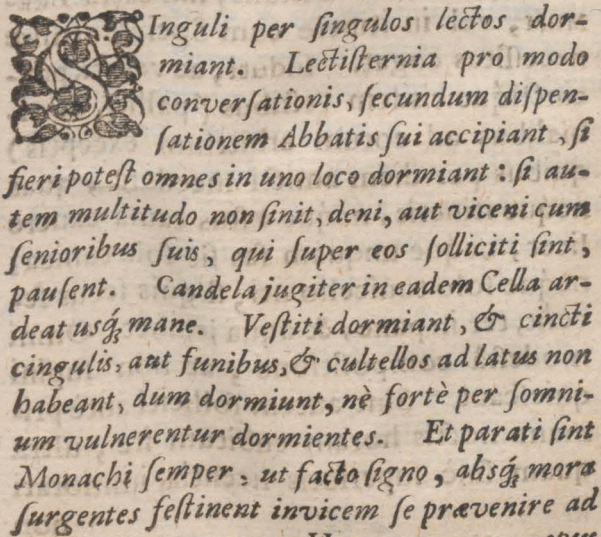 SInguli per ſingulos lectos, dor-
miant. Lectiſternia pro modo
converſationis, ſecundum diſpen-
ſationem Abbatis ſui accipiant, ſi
fieri poteſt omnes in uno loco dormiant: ſi au-
tem multitudo non ſinit, deni, aut viceni cum
ſenioribus ſuis, qui ſuper eos ſolliciti ſint,
pauſent. Candela jugiter in eadem Cella ar-
deat uſq́; mane. Veſtiti dormiant, & cincti
cingulis, aut funibus, & cultellos ad latus non
habeant, dum dormiunt, nè fortè per ſomni-
um vulnerentur dormientes. Et parati ſint
Monachi ſemper, ut facto ſigno, abſq́; mora
ſurgentes feſtinent invicem ſe prævenire ad